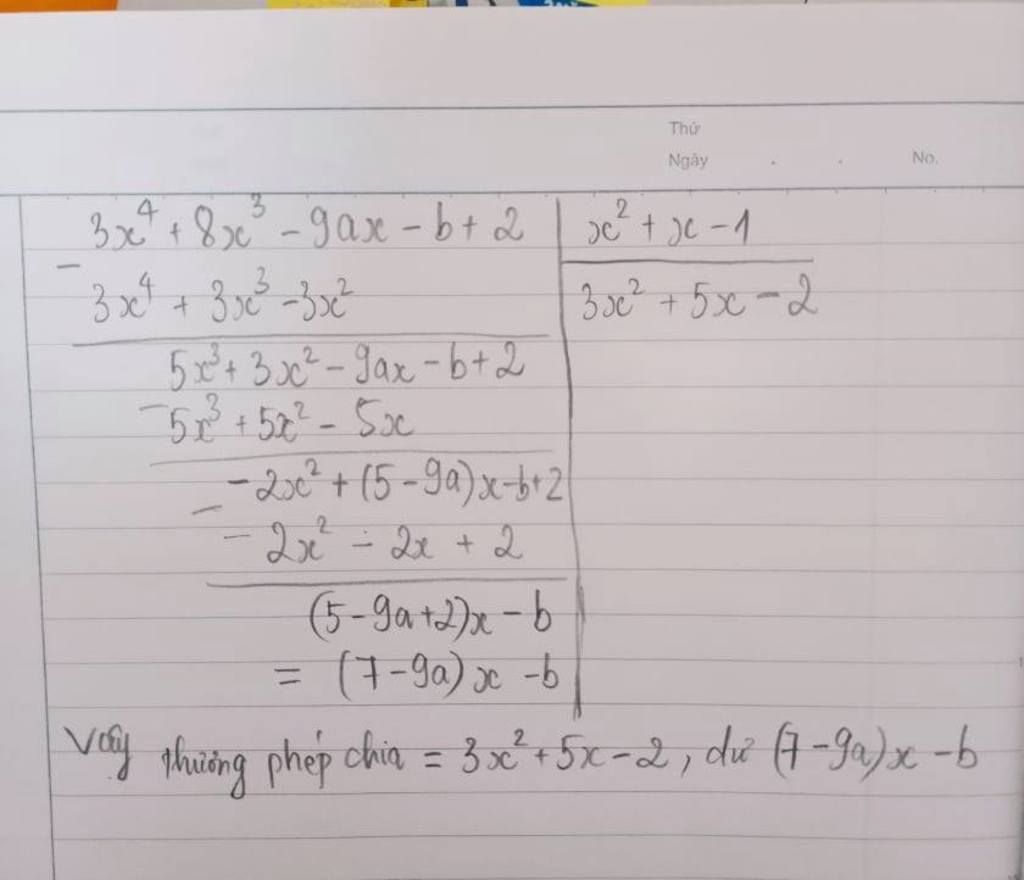 Thứ
Ngày . . No.
3x⁴ + 8x³ - 9ax - b + 2 | x² + x - 1
-
3x⁴ + 3x³ - 3x² | 3x² + 5x - 2
5x³ + 3x² - 9ax - b + 2
- 5x³ + 5x² - 5x
- 2x² + (5 - 9a)x - b + 2
-
- 2x² - 2x + 2
(5 - 9a + 2)x - b
= (7 - 9a)x - b
Vậy thương phép chia = 3x² + 5x - 2, dư (7 - 9a)x - b